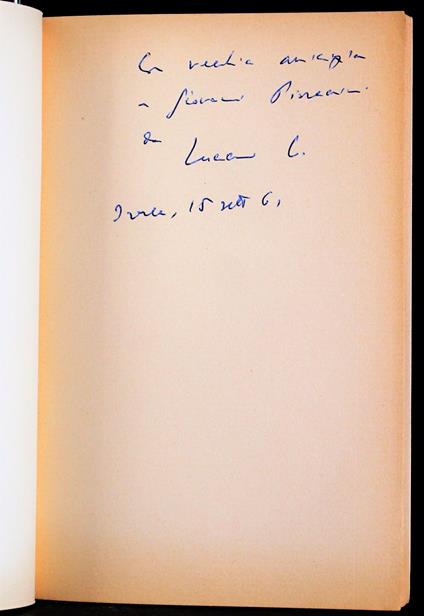 Con vecchia amicizia
a Giovanni Pirrecini
da
Luciano C.
15 sett 61